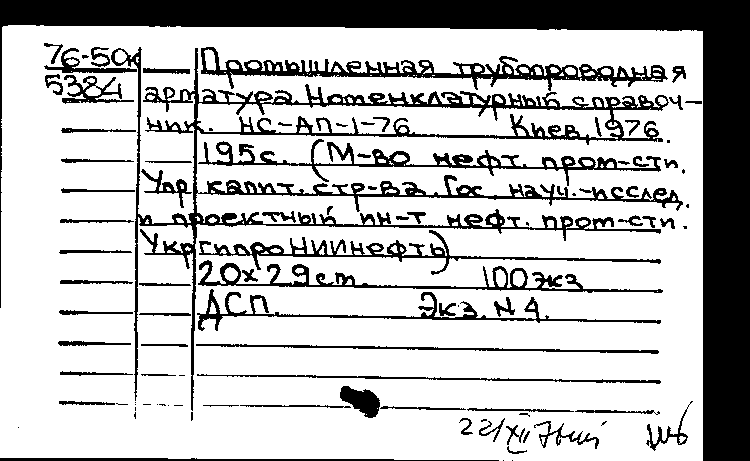 76-50к Промышленная трубопроводная
5384 арматура. Номенклатурный справоч-
ник. НС-АП-1-76. Киев, 1976.
195с. (М-во нефт. пром-сти.
Упр капит. стр-ва. Гос. науч.-исслед.
и проектный ин-т нефт. пром-сти.
УкргипроНИИнефть).
20х29см. 100экз
ДСП. Экз. N 4.
22/XII